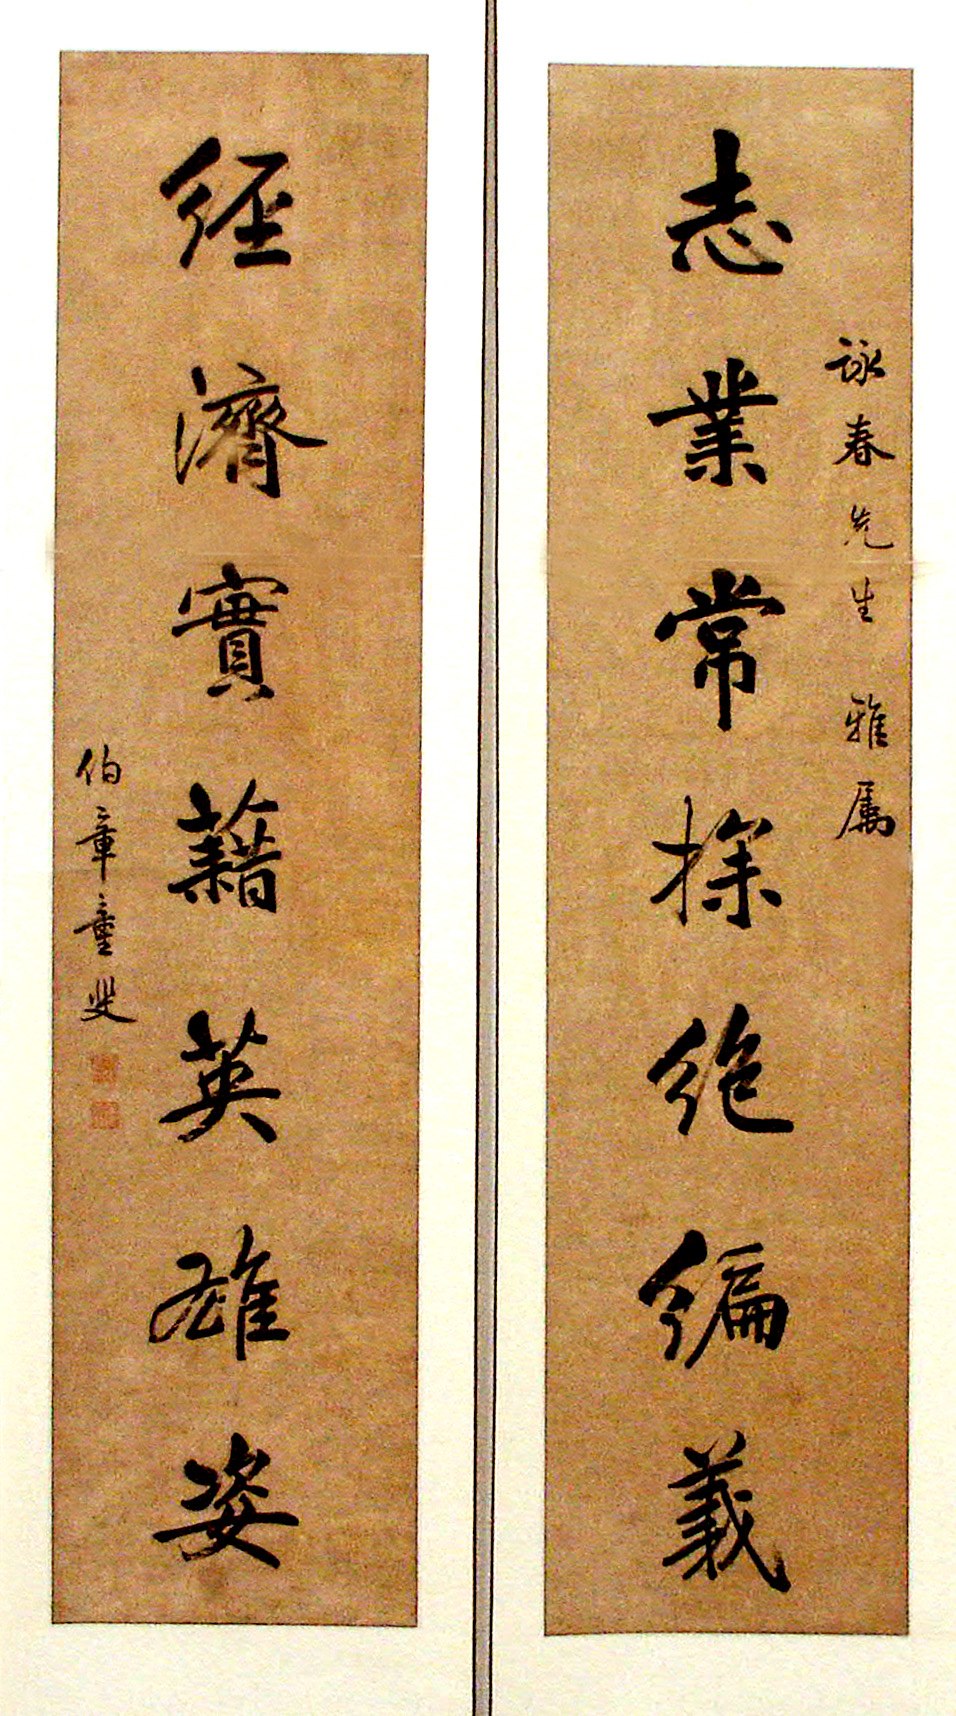 詠春先生 雅屬
志業常探絶編義
經濟實藉英雄姿
伯章童叟